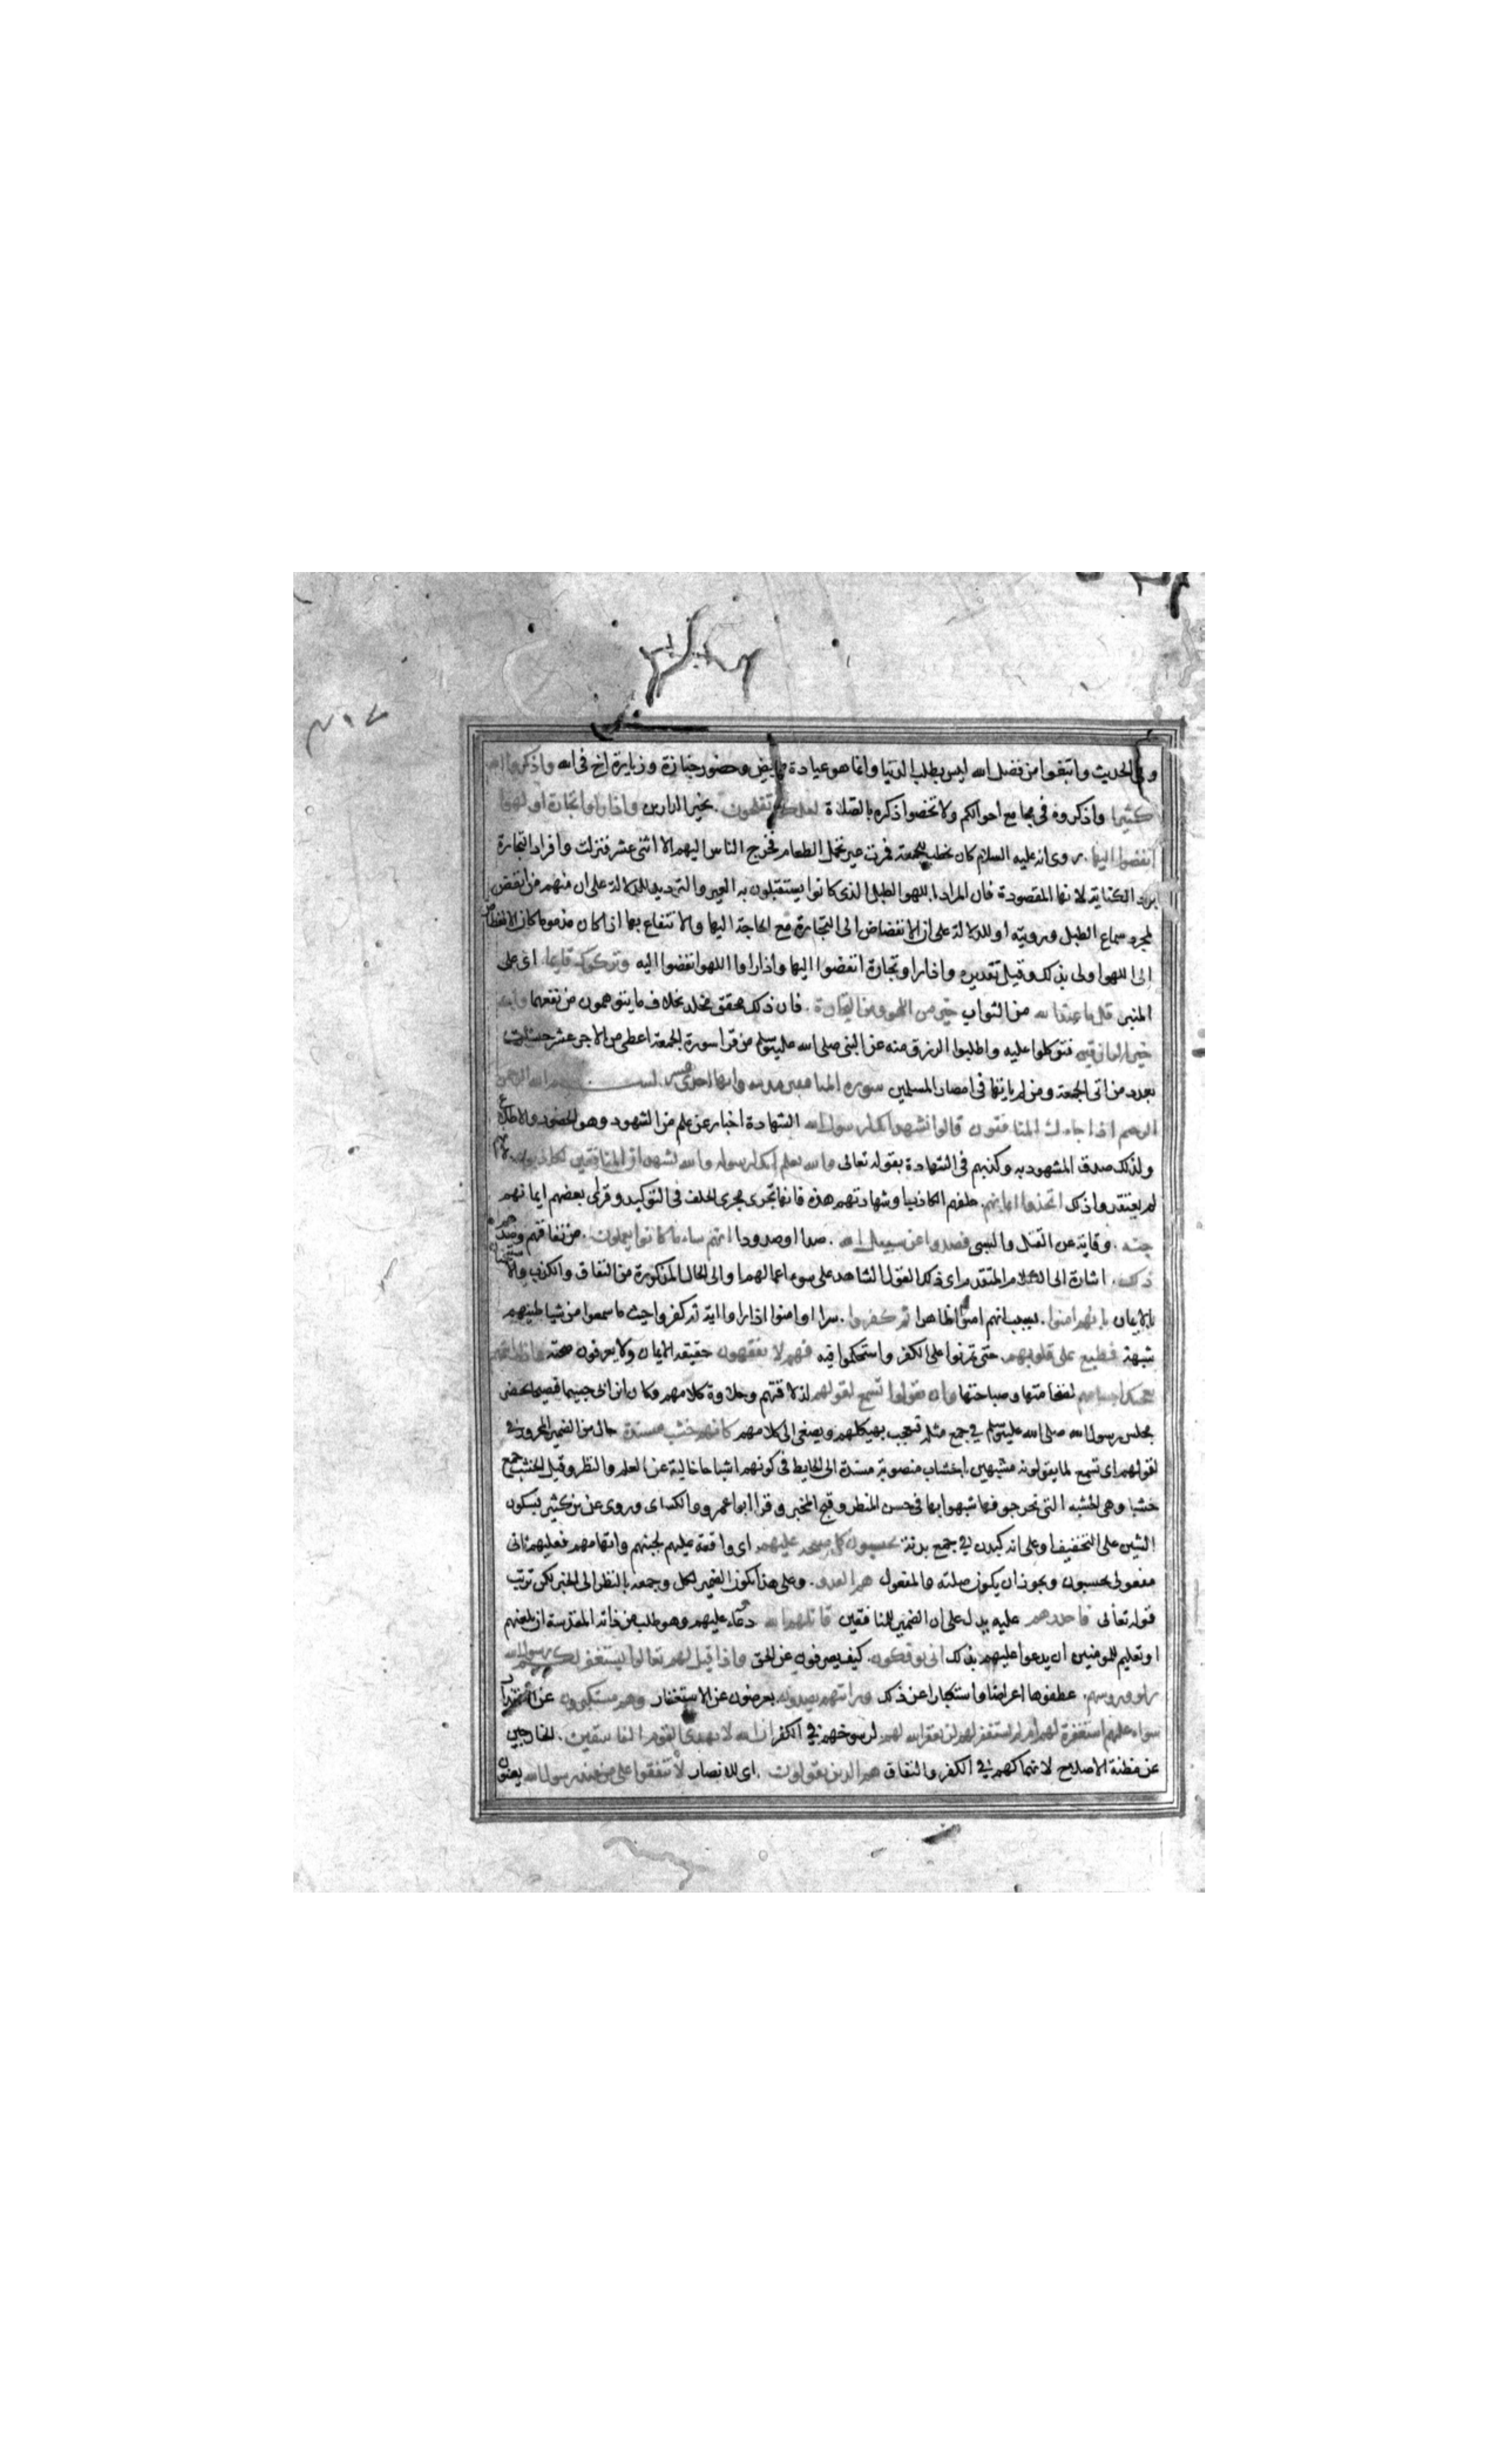 وفي الحديث وابتغوا من فضل الله ليس بطلب الدنيا وانما هو عيادة مريض وحضور جنازة وزيارة اخ في الله واذكروا الله
كثيرا واذكروه في مجامع احوالكم ولا تخصوا ذكره بالصلاة لعلكم تفلحون بخير الدارين واذا راوا تجارة او لهوا
انفضوا اليها روى انه عليه السلام كان يخطب للجمعة فمرت عير تحمل الطعام فخرج الناس اليهم الا اثنى عشر فنزلت وافراد التجارة
برد الكناية لانها المقصودة فان المراد من اللهو الطبل الذى كانوا يستقبلون به العير والترديد للدلالة على ان منهم من انفض
لمجرد سماع الطبل ورويته او للدلالة على ان الانفضاض الى التجارة مع الحاجة اليها والانتفاع بها اذا كان مذموما كان الانفضاض
الى اللهو اولى بذلك وقيل تقديره واذا راوا تجارة انفضوا اليها واذا راوا اللهو انفضوا اليه وتركوك قايما اى على
المنبر قل ما عند الله من الثواب خير من اللهو ومن التجارة فان ذلك محقق مخلد بخلاف ما يتوهمون من نفعهما والله
خير الرازقين فتوكلوا عليه واطلبوا الرزق منه عن النبى صلى الله عليه وسلم من قرا سورة الجمعة اعطى من الاجر عشر حسنات
بعدد من اتى الجمعة ومن لم ياتها في امصار المسلمين سورة المنافقين مدنية وايها احدى عشر بسم الله الرحمن
الرحيم اذا جاءك المنافقون قالوا نشهد انك لرسول الله الشهادة اخبار عن علم من الشهود وهو الحضور والاطلاع
ولذلك صدق المشهود به وكذبهم في الشهادة بقوله تعالى والله يعلم انك لرسوله والله يشهد ان المنافقين لكاذبون لانهم
لم يعتقدوا ذلك اتخذوا ايمانهم حلفهم الكاذب او شهادتهم هذه فانها تجرى مجرى الحلف في التوكيد وقرئ بعضهم ايمانهم
جنة وقاية عن القتل والسبى فصدوا عن سبيل الله صدا او صدودا انهم ساء ما كانوا يعملون من نفاقهم وصدهم
ذلك اشارة الى الكلام المتقدم اى ذلك القول الشاهد على سوء اعمالهم او الى الحال المذكورة من النفاق والكذب والاستجنان
بالايمان بانهم امنوا بسبب انهم امنوا ظاهرا ثم كفروا سرا او امنوا اذا راوا اية ثم كفروا حيث ما سمعوا من شياطينهم
شبهة فطبع على قلوبهم حتى تمرنوا على الكفر واستحكموا فيه فهم لا يفقهون حقيقة الايمان ولا يعرفون صحته واذا رايتهم
تعجبك اجسامهم لضخامتها وصباحتها وان يقولوا تسمع لقولهم لذلاقتهم وحلاوة كلامهم وكان ابن ابى جسيما فصيحا يحضر
مجلس رسول الله صلى الله عليه وسلم في جمع مثله فيعجب بهيكلهم ويصغى الى كلامهم كانهم خشب مسندة حال من الضمير المجرور في
لقولهم اى تسمع لما يقولونه مشبهين باخشاب منصوبة مسندة الى الحايط في كونهم اشباحا خالية عن العلم والنظر وقيل الخشب جمع
خشبا وهى الخشبة التى نخر جوفها شبهوا بها في حسن المنظر وقبح المخبر وقرا ابو عمرو والكساى وروى عن بن كثير بسكون
الشين على التخفيف او على انه كبدن في جمع بدنة يحسبون كل صيحة عليهم اى واقعة عليهم لجبنهم واتهامهم فعليهم ثانى
مفعولى يحسبون ويجوز ان يكون صلته والمفعول هم العدو وعلى هذا يكون الضمير لكل وجمعه بالنظر الى الخبر لكن ترتب
قوله تعالى فاحذرهم عليه يدل على ان الضمير للمنافقين قاتلهم الله دعاء عليهم وهو طلب من ذاته المقدسة ان يلعنهم
او تعليم للمومنين ان يدعوا عليهم بذلك انى يوفكون كيف يصرفون عن الحق واذا قيل لهم تعالوا يستغفر لكم رسول الله
لووا روسهم عطفوها اعراضا واستكبارا عن ذلك ورايتهم يصدون يعرضون عن الاستغفار وهم مستكبرون عن الاعتذار
سواء عليهم استغفرت لهم ام لم تستغفر لهم لن يغفر الله لهم لرسوخهم في الكفر ان الله لا يهدى القوم الفاسقين الخارجين
عن مظنة الاصلاح لانهماكهم في الكفر والنفاق هم الذين يقولون اى للانصار لا تنفقوا على من عند رسول الله يعنون